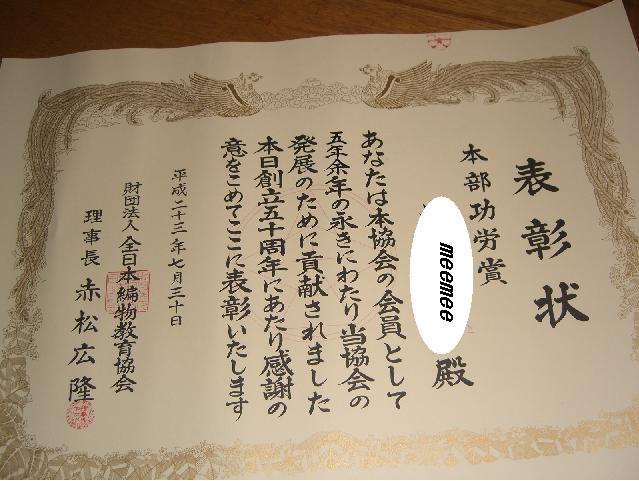 表彰状
本部功労賞
meemee
殿
あなたは本協会の会員として
五年余年の永きにわたり当協会の
発展のために貢献されました
本日創立五十周年にあたり感謝の
意をこめてここに表彰いたします
平成二十三年七月三十日
財団法人 全日本編物教育協会
理事長 赤松広隆